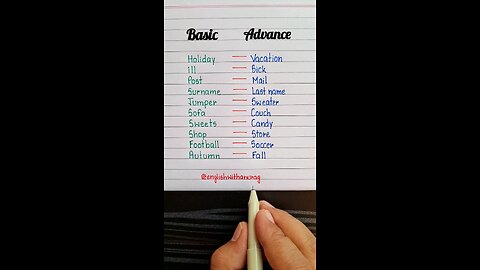 Basic Advance
Holiday — Vacation
ill — Sick
Post — Mail
Surname — Last name
Jumper — Sweater
Sofa — Couch
Sweets — Candy
Shop — Store
Football — Soccer
Autumn — Fall
@englishwithanurag